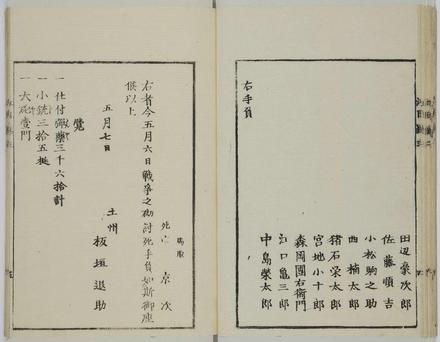 田辺豪次郎
佐藤順吉
小松駒之助
西楠太郎
猪石栄太郎
宮地小十郎
森岡團右衛門
江口亀三郎
中島榮太郎
右手負
馬取
死亡 京次
右者今五月六日戰爭之砌討死手負如斯御座
候以上
五月七日
土州
板垣退助
覺
一 仕付彈藥三千六拾計
一 小銃三拾五挺
一 大砲壹門